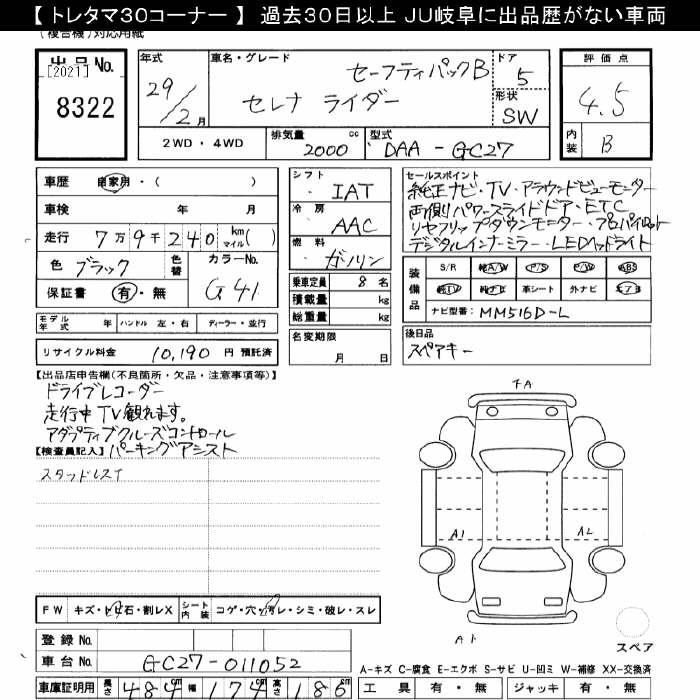 【 トレタマ30コーナー 】 過去30日以上 JU岐阜に出品歴がない車両
(複合機)対応用紙
出品No.
[2021]
8322
年式
29/2月
車名・グレード
セーフティパックB
セレナ ライダー
ドア
5
形状
SW
評価点
4.5
内装
B
2WD・4WD
排気量
2000
cc
型式
DAA-GC27
車歴
自家用・(　　)
車検
年　月
走行
7万9千240
km
マイル
色
ブラック
色替
カラーNo.
G41
保証書
有・無
シフト
IAT
冷房
AAC
燃料
ガソリン
乗車定員
8名
積載量
kg
総重量
kg
名変期限
月　日
セールスポイント
純正ナビ・TV・アラウンドビューモニター
両側パワースライドドア・ETC
リヤフリップダウンモニター・プロパイロット
デジタルインナーミラー・LEDヘッドライト
装備品
S/R
純A/W
P/S
P/W
ABS
純TV
純ナビ
革シート
外ナビ
エアB
ナビ型番:
MM516D-L
モデル年式
年
ハンドル
左・右
ディーラー・並行
リサイクル料金
10,190
円 預託済
後日品
スペアキー
【出品店申告欄(不良箇所・欠品・注意事項等)】
ドライブレコーダー
走行中TV観れます。
アダプティブクルーズコントロール
【検査員記入】
パーキングアシスト
スタッドレスT
FA
A1
A2
A1
スペア
FW
キズ・ト飛石・割レX
シート内装
コゲ・穴・汚レ・シミ・破レ・スレ
登録No.
車台No.
GC27-011052
車庫証明用
長さ
484
cm
幅
174
cm
高さ
186
cm
A-キズ C-腐食 E-エクボ S-サビ U-凹ミ W-補修 XX-交換済
工具
有・無
ジャッキ
有・無